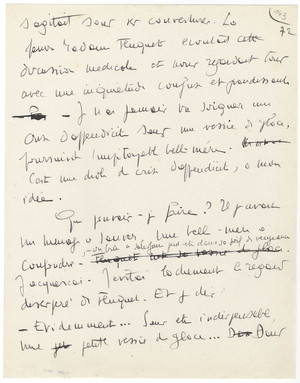 72
s'agitait sous ses couvertures. La
pauvre Madame Fenquet écoutait cette
discussion médicale et nous regardait tour
avec une inquiétude confuse et grandissante
- Je n'ai jamais vu soigner une
crise d'appendicite sans une vessie de glace,
poursuivait l'impitoyable belle-mère.
C'est une drôle de crise d'appendicite, à mon
idée.
Que pouvais-je faire? Il y avait
un ménage à sauver, une belle-mère à
confondre
J'acquiesçai. J'évitai lâchement le regard
désespéré de Fenquet. Et je dis:
- Evidemment... Sans être indispensable,
une petite vessie de glace...